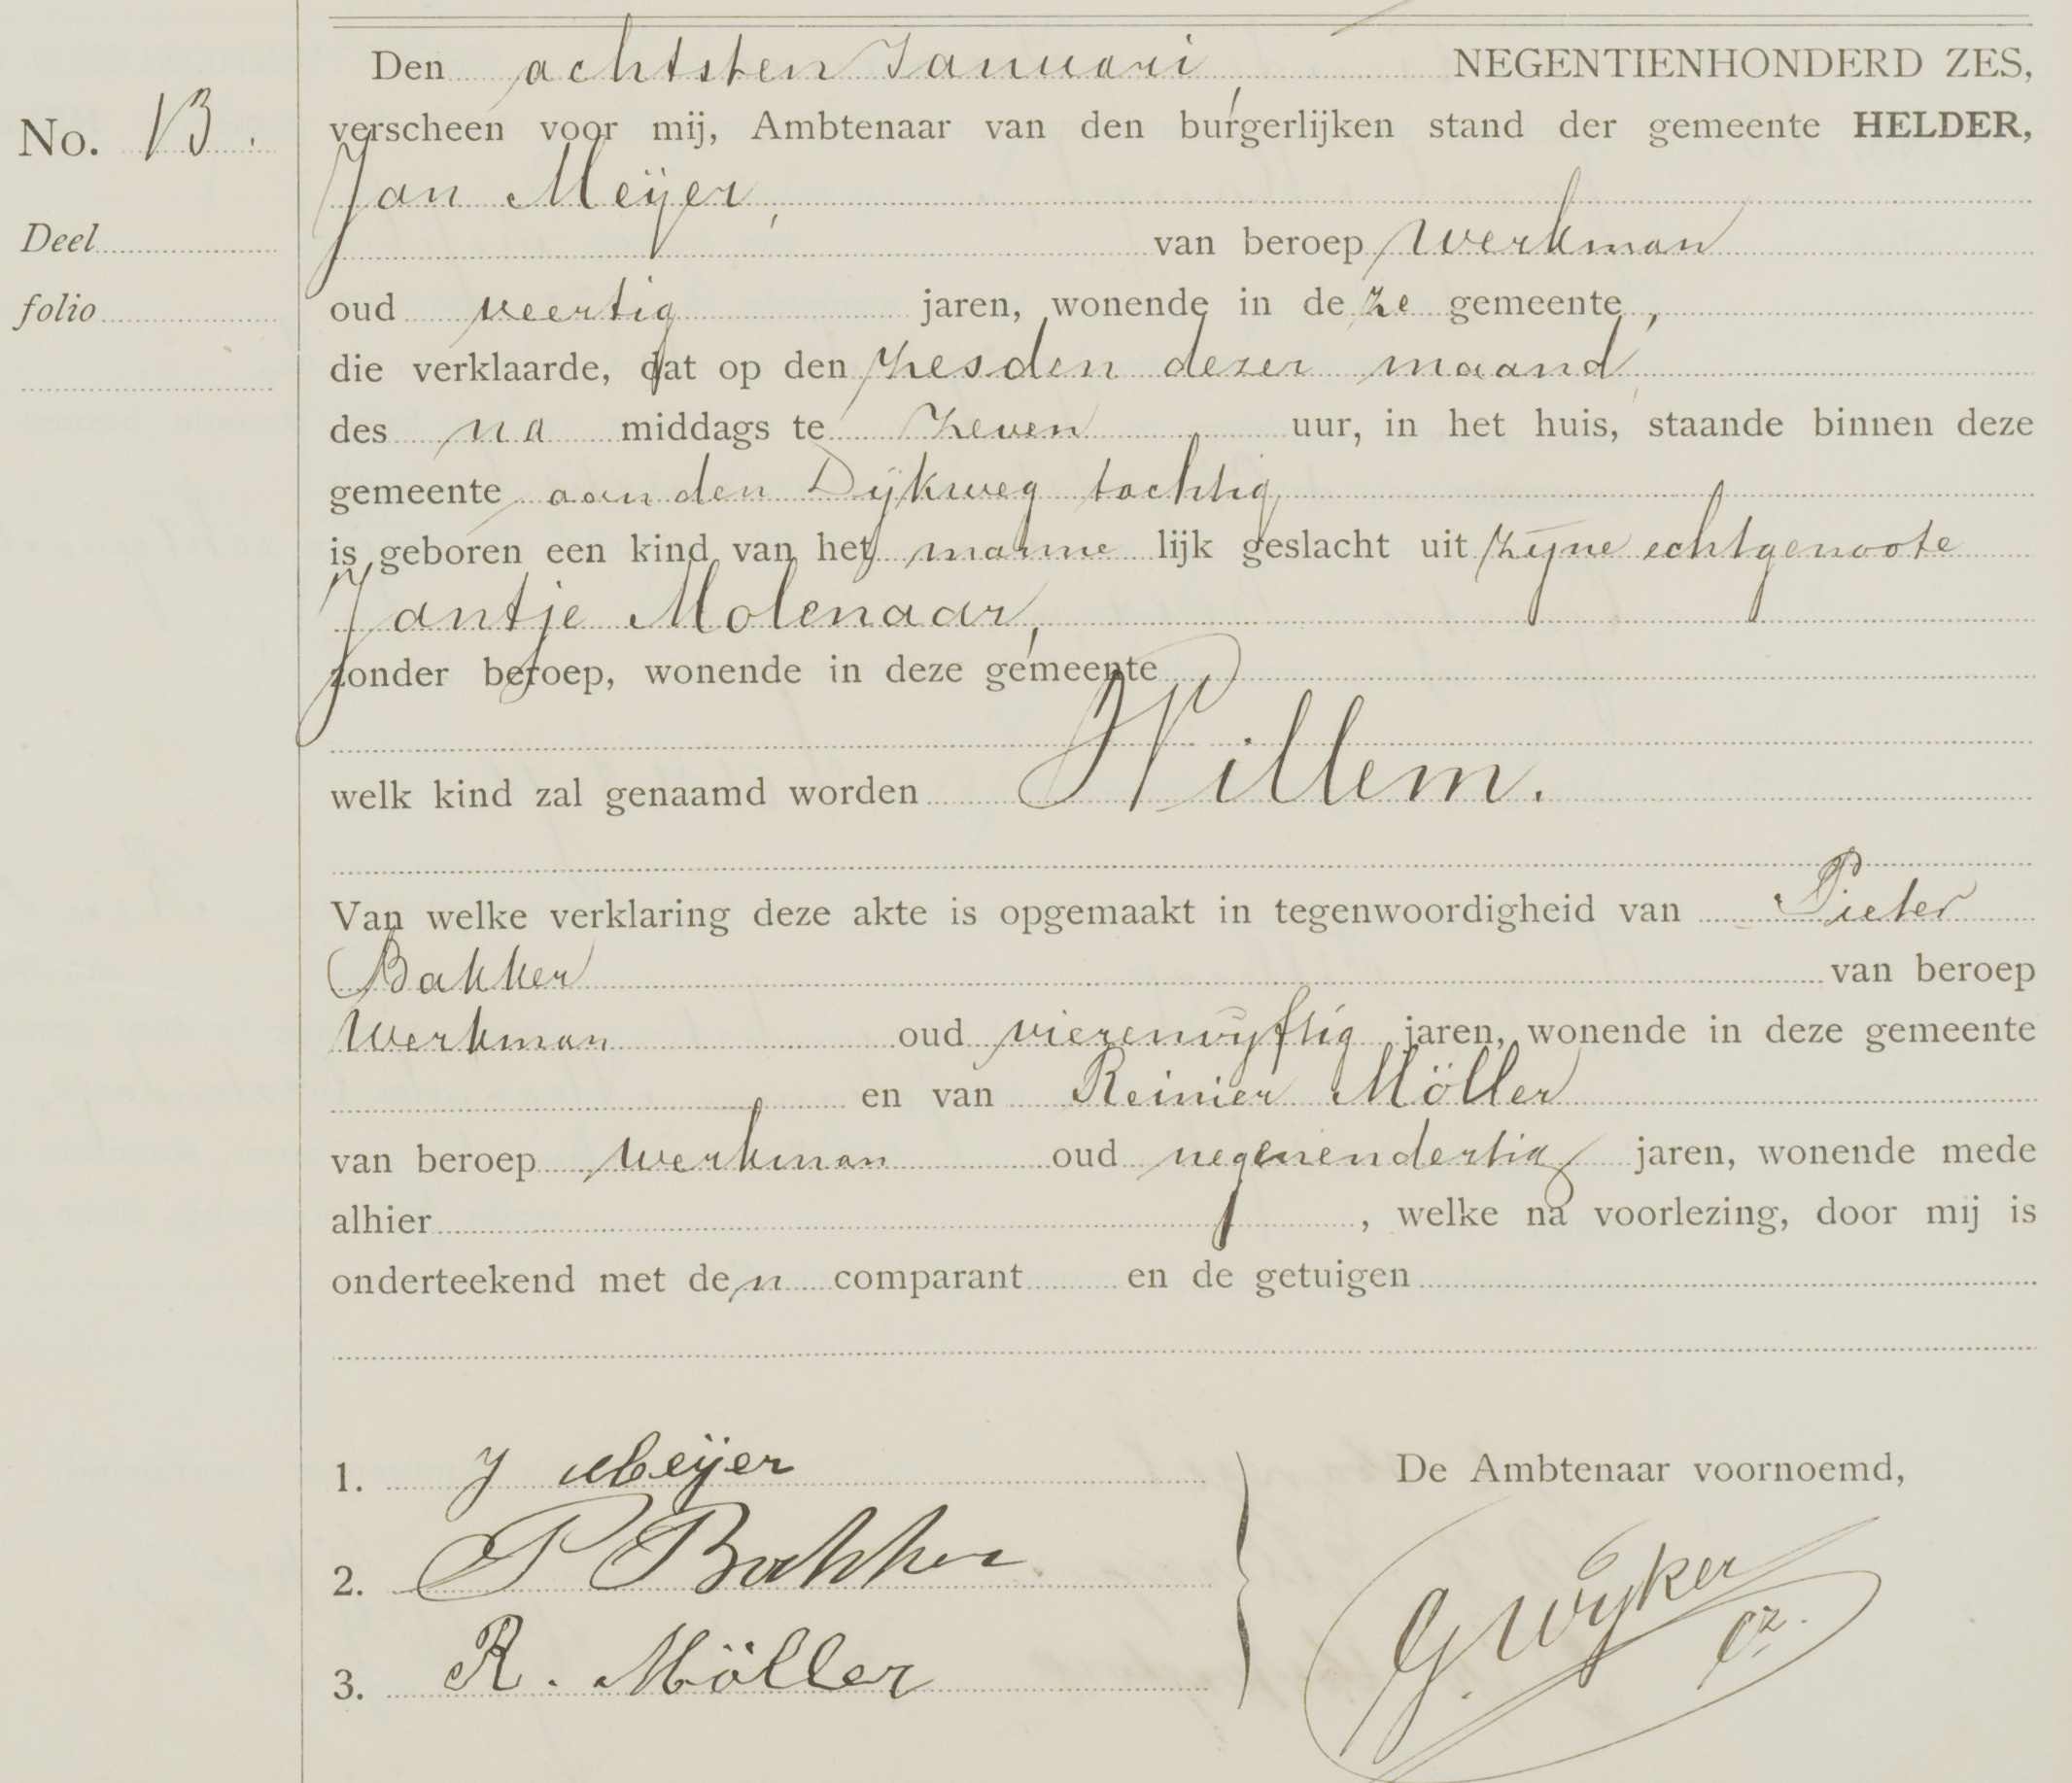 Den achtsten Januari, NEGENTIENHONDERD ZES,
No. 13.
verscheen voor mij, Ambtenaar van den burgerlijken stand der gemeente HELDER,
Jan Meijer,
Deel
van beroep werkman
folio
oud veertig jaren, wonende in deze gemeente,
die verklaarde, dat op den zesden dezer maand,
des na middags te zeven uur, in het huis, staande binnen deze
gemeente aan den Dijkweg tachtig,
is geboren een kind van het manne lijk geslacht uit zijne echtgenoote
Jantje Molenaar,
zonder beroep, wonende in deze gemeente
welk kind zal genaamd worden Willem.
Van welke verklaring deze akte is opgemaakt in tegenwoordigheid van Pieter
Bakker van beroep
Werkman oud vierenvijftig jaren, wonende in deze gemeente
en van Reinier Möller
van beroep werkman oud negenendertig jaren, wonende mede
alhier, welke na voorlezing, door mij is
onderteekend met den comparant en de getuigen
1. J Meijer
De Ambtenaar voornoemd,
2. P Bakker
G. Wijker
3. R. Möller